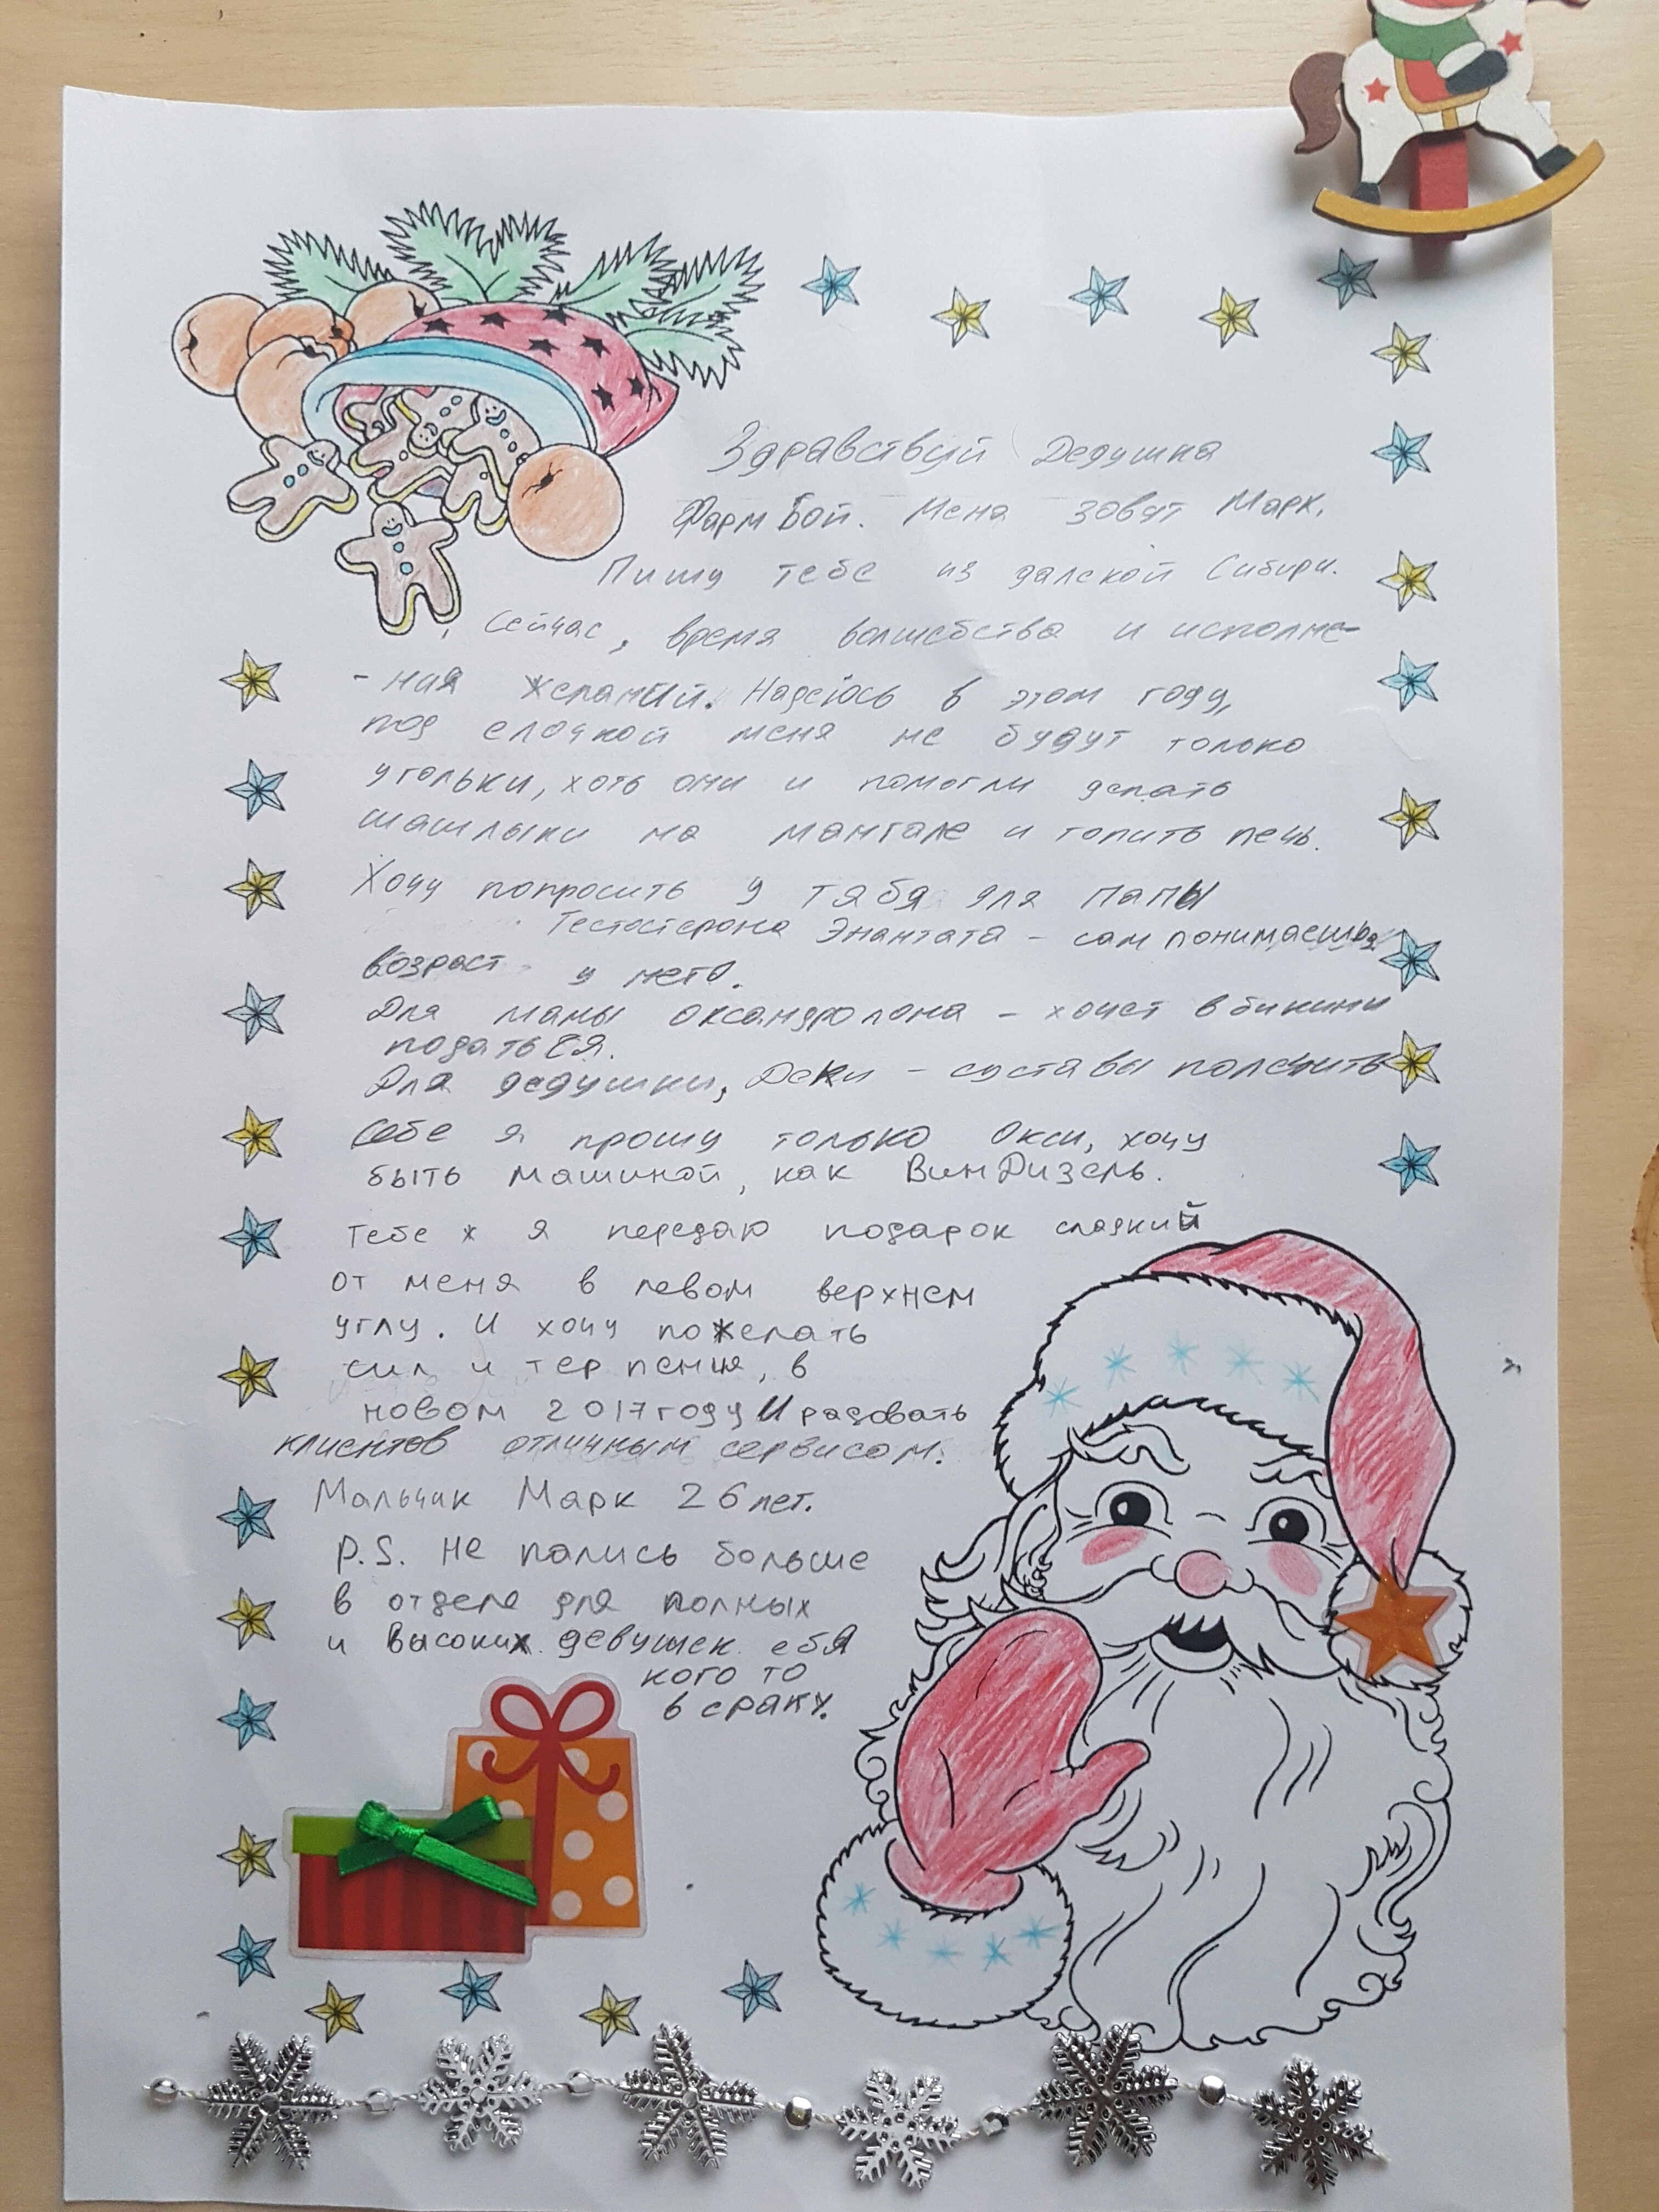 Здравствуй Дедушка
Фарм Бой. Меня зовут Марк.
Пишу тебе из далекой Сибири.
Сейчас, время волшебства и исполне-
-ния желаний. Надеюсь в этом году,
под елочкой меня не будут только
угольки, хоть они и помогли делать
шашлыки на мангале и топить печь.
Хочу попросить у тябя для папы
Тестостерона Энантата - сам понимаешь
возраст у него.
Для мамы оксандролона - хочет в бикини
податься.
Для дедушки, Деки - суставы полечить
Себе я прошу только Окси, хочу
быть машиной, как ВинДизель.
Тебе ж я передаю подарок сладкий
от меня в левом верхнем
углу. И хочу пожелать
сил и терпения, в
новом 2017 году И радовать
клиентов отличным сервисом.
Мальчик Марк 26 лет.
P.S. Не пались больше
в отделе для полных
и высоких девушек ебя
кого то
в сраку.